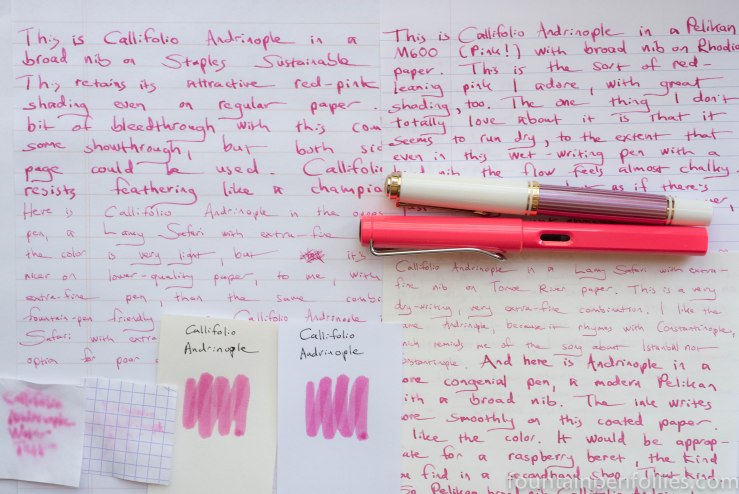 This is Callifolio Andrinople in a
broad nib on Staples Sustainable
This retains its attractive red-pink
shading even on regular paper.
bit of bleedthrough with this com
some showthrough, but both sid
page could be used. Callifolio
resists feathering like a champio
Here is Callifolio Andrinople in the
pen, a Lamy Safari with extra-fine
the color is very light, but it's
nicer on lower-quality paper, to me, with
extra-fine pen, than the same combi
fountain-pen friendly Callifolio Andrinople
Safari with extra
option for poor
This is Callifolio Andrinople in a Pelikan
M600 (Pink!) with broad nib on Rhodia
paper. This is the sort of red-
leaning pink I adore, with great
shading, too. The one thing I don't
totally love about it is that it
seems to run dry, to the extent that
even in this wet-writing pen with a
nib the flow feels almost chalky.
as if there's
Callifolio Andrinople in a Lamy Safari with extra-
fine nib on Tomoe River paper. This is a very
dry-writing, very extra-fine combination. I like the
name Andrinople, because it rhymes with Constantinople,
which reminds me of the song about Istanbul not
Constantinople. And here is Andrinople in a
more congenial pen, a modern Pelikan
with a broad nib. The ink writes
more smoothly on this coated paper.
I like the color. It would be approp-
iate for a raspberry beret, the kind
you find in a secondhand shop. That kind.
Pelikan broad nib Callifolio
Callifolio
Andrinople
Callifolio
Andrinople
Callifolio
Andrinople
Water
Test
fountainpenfollies.com